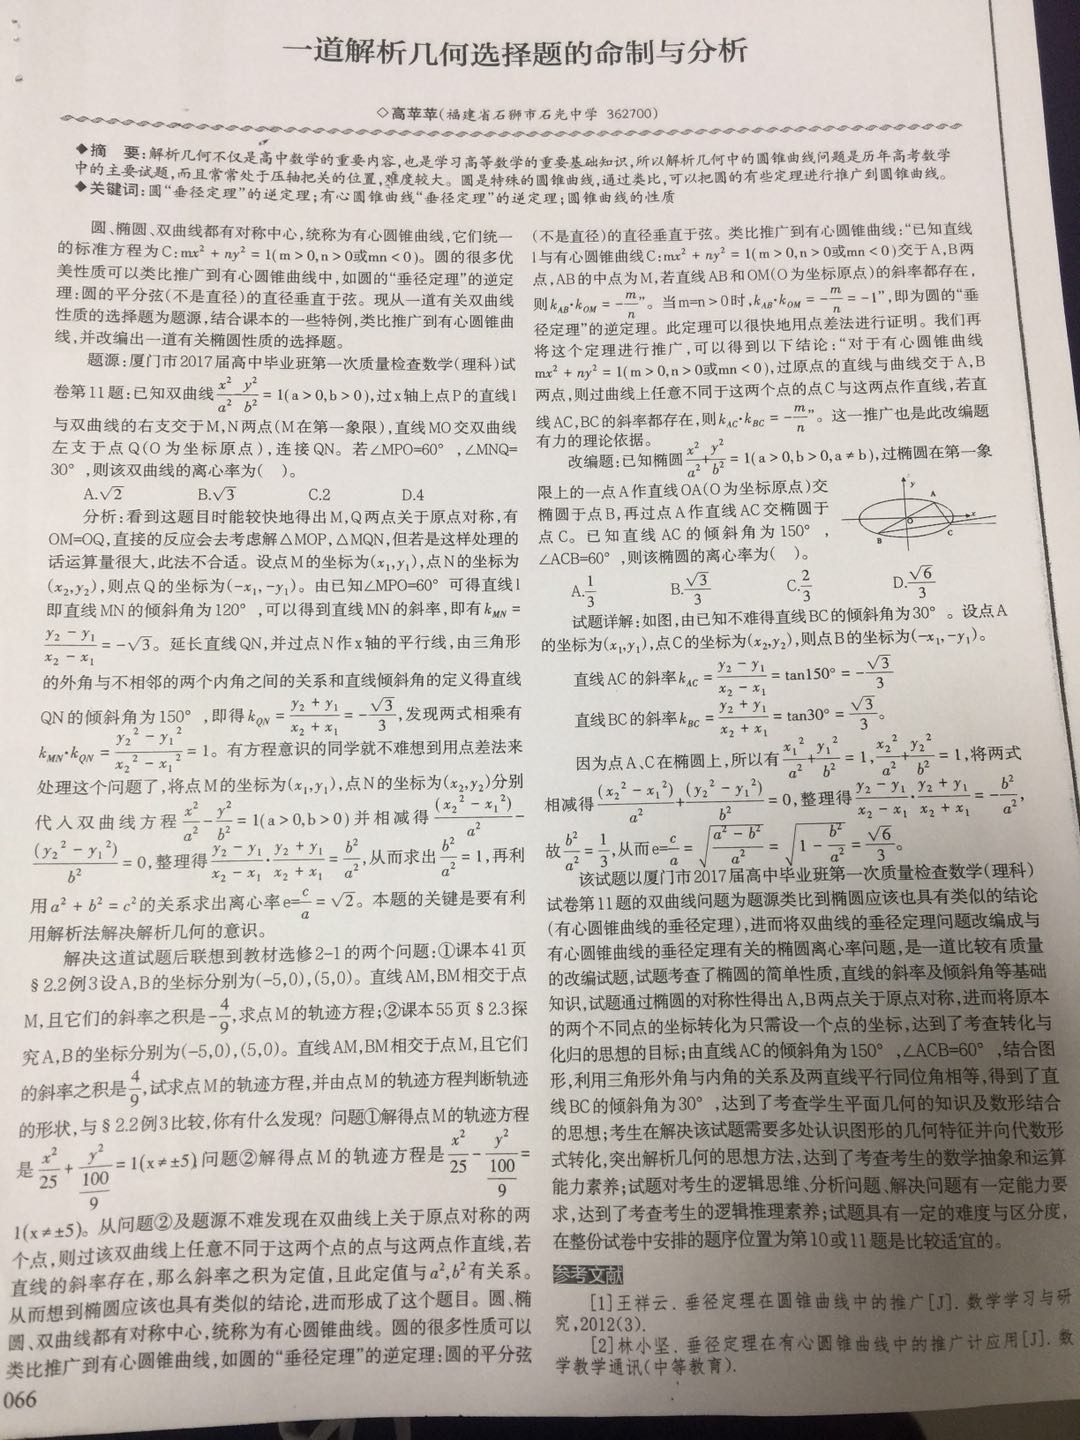 一道解析几何选择题的命制与分析
◇高苹苹(福建省石狮市石光中学 362700)
◆摘 要:解析几何不仅是高中数学的重要内容,也是学习高等数学的重要基础知识,所以解析几何中的圆锥曲线问题是历年高考数学
中的主要试题,而且常常处于压轴把关的位置,难度较大。圆是特殊的圆锥曲线,通过类比,可以把圆的有些定理进行推广到圆锥曲线。
◆关键词:圆“垂径定理”的逆定理;有心圆锥曲线“垂径定理”的逆定理;圆锥曲线的性质
圆、椭圆、双曲线都有对称中心,统称为有心圆锥曲线,它们统一
的标准方程为C:mx² + ny² = 1(m>0,n>0或mn<0)。圆的很多优
美性质可以类比推广到有心圆锥曲线中,如圆的“垂径定理”的逆定
理:圆的平分弦(不是直径)的直径垂直于弦。现从一道有关双曲线
性质的选择题为题源,结合课本的一些特例,类比推广到有心圆锥曲
线,并改编出一道有关椭圆性质的选择题。
题源:厦门市2017届高中毕业班第一次质量检查数学(理科)试
卷第11题:已知双曲线x²/a² - y²/b² = 1(a>0,b>0),过x轴上点P的直线l
与双曲线的右支交于M,N两点(M在第一象限),直线MO交双曲线
左支于点Q(O为坐标原点),连接QN。若∠MPO=60°,∠MNQ=
30°,则该双曲线的离心率为( )。
A.√2 B.√3 C.2 D.4
分析:看到这题目时能较快地得出M,Q两点关于原点对称,有
OM=OQ,直接的反应会去考虑解△MOP,△MQN,但若是这样处理的
话运算量很大,此法不合适。设点M的坐标为(x₁,y₁),点N的坐标为
(x₂,y₂),则点Q的坐标为(-x₁,-y₁)。由已知∠MPO=60°可得直线l
即直线MN的倾斜角为120°,可以得到直线MN的斜率,即有k_MN =
(y₂ - y₁)/(x₂ - x₁) = -√3。延长直线QN,并过点N作x轴的平行线,由三角形
的外角与不相邻的两个内角之间的关系和直线倾斜角的定义得直线
QN的倾斜角为150°,即得k_QN = (y₂ + y₁)/(x₂ + x₁) = -√3/3,发现两式相乘有
k_MN·k_QN = (y₂² - y₁²)/(x₂² - x₁²) = 1。有方程意识的同学就不难想到用点差法来
处理这个问题了,将点M的坐标为(x₁,y₁),点N的坐标为(x₂,y₂)分别
代入双曲线方程x²/a² - y²/b² = 1(a>0,b>0)并相减得(x₂² - x₁²)/a² -
(y₂² - y₁²)/b² = 0,整理得(y₂ - y₁)/(x₂ - x₁)·(y₂ + y₁)/(x₂ + x₁) = b²/a²,从而求出b²/a² = 1,再利
用a² + b² = c²的关系求出离心率e=c/a = √2。本题的关键是要有利
用解析法解决解析几何的意识。
解决这道试题后联想到教材选修2-1的两个问题:①课本41页
§2.2例3设A,B的坐标分别为(-5,0),(5,0)。直线AM,BM相交于点
M,且它们的斜率之积是-4/9,求点M的轨迹方程;②课本55页§2.3探
究A,B的坐标分别为(-5,0),(5,0)。直线AM,BM相交于点M,且它们
的斜率之积是4/9,试求点M的轨迹方程,并由点M的轨迹方程判断轨迹
的形状,与§2.2例3比较,你有什么发现?问题①解得点M的轨迹方程
是x²/25 + y²/(100/9) = 1(x≠±5),问题②解得点M的轨迹方程是x²/25 - y²/(100/9) =
1(x≠±5)。从问题②及题源不难发现在双曲线上关于原点对称的两
个点,则过该双曲线上任意不同于这两个点的点与这两点作直线,若
直线的斜率存在,那么斜率之积为定值,且此定值与a²,b²有关系。
从而想到椭圆应该也具有类似的结论,进而形成了这个题目。圆、椭
圆、双曲线都有对称中心,统称为有心圆锥曲线。圆的很多性质可以
类比推广到有心圆锥曲线,如圆的“垂径定理”的逆定理:圆的平分弦
066
(不是直径)的直径垂直于弦。类比推广到有心圆锥曲线:“已知直线
l与有心圆锥曲线C:mx² + ny² = 1(m>0,n>0或mn<0)交于A,B两
点,AB的中点为M,若直线AB和OM(O为坐标原点)的斜率都存在,
则k_AB·k_OM = -m/n”。当m=n>0时,k_AB·k_OM = -m/n = -1”,即为圆的“垂
径定理”的逆定理。此定理可以很快地用点差法进行证明。我们再
将这个定理进行推广,可以得到以下结论:“对于有心圆锥曲线
mx² + ny² = 1(m>0,n>0或mn<0),过原点的直线与曲线交于A,B
两点,则过曲线上任意不同于这两个点的点C与这两点作直线,若直
线AC,BC的斜率都存在,则k_AC·k_BC = -m/n”。这一推广也是此改编题
有力的理论依据。
改编题:已知椭圆x²/a² + y²/b² = 1(a>0,b>0,a≠b),过椭圆在第一象
限上的一点A作直线OA(O为坐标原点)交
椭圆于点B,再过点A作直线AC交椭圆于
点C。已知直线AC的倾斜角为150°,
∠ACB=60°,则该椭圆的离心率为( )。
y
A
O
x
B
C
A.1/3 B.√3/3 C.2/3 D.√6/3
试题详解:如图,由已知不难得直线BC的倾斜角为30°。设点A
的坐标为(x₁,y₁),点C的坐标为(x₂,y₂),则点B的坐标为(-x₁,-y₁)。
直线AC的斜率k_AC = (y₂ - y₁)/(x₂ - x₁) = tan150° = -√3/3
直线BC的斜率k_BC = (y₂ + y₁)/(x₂ + x₁) = tan30° = √3/3。
因为点A、C在椭圆上,所以有x₁²/a² + y₁²/b² = 1,x₂²/a² + y₂²/b² = 1,将两式
相减得(x₂² - x₁²)/a² + (y₂² - y₁²)/b² = 0,整理得(y₂ - y₁)/(x₂ - x₁)·(y₂ + y₁)/(x₂ + x₁) = -b²/a²,
故b²/a² = 1/3,从而e=c/a = √((a² - b²)/a²) = √(1 - b²/a²) = √6/3。
该试题以厦门市2017届高中毕业班第一次质量检查数学(理科)
试卷第11题的双曲线问题为题源类比到椭圆应该也具有类似的结论
(有心圆锥曲线的垂径定理),进而将双曲线的垂径定理问题改编成与
有心圆锥曲线的垂径定理有关的椭圆离心率问题,是一道比较有质量
的改编试题,试题考查了椭圆的简单性质,直线的斜率及倾斜角等基础
知识,试题通过椭圆的对称性得出A,B两点关于原点对称,进而将原本
的两个不同点的坐标转化为只需设一个点的坐标,达到了考查转化与
化归的思想的目标;由直线AC的倾斜角为150°,∠ACB=60°,结合图
形,利用三角形外角与内角的关系及两直线平行同位角相等,得到了直
线BC的倾斜角为30°,达到了考查学生平面几何的知识及数形结合
的思想;考生在解决该试题需要多处认识图形的几何特征并向代数形
式转化,突出解析几何的思想方法,达到了考查考生的数学抽象和运算
能力素养;试题对考生的逻辑思维、分析问题、解决问题有一定能力要
求,达到了考查考生的逻辑推理素养;试题具有一定的难度与区分度,
在整份试卷中安排的题序位置为第10或11题是比较适宜的。
参考文献
[1]王祥云.垂径定理在圆锥曲线中的推广[J].数学学习与研
究,2012(3).
[2]林小坚.垂径定理在有心圆锥曲线中的推广计应用[J].数
学教学通讯(中等教育).